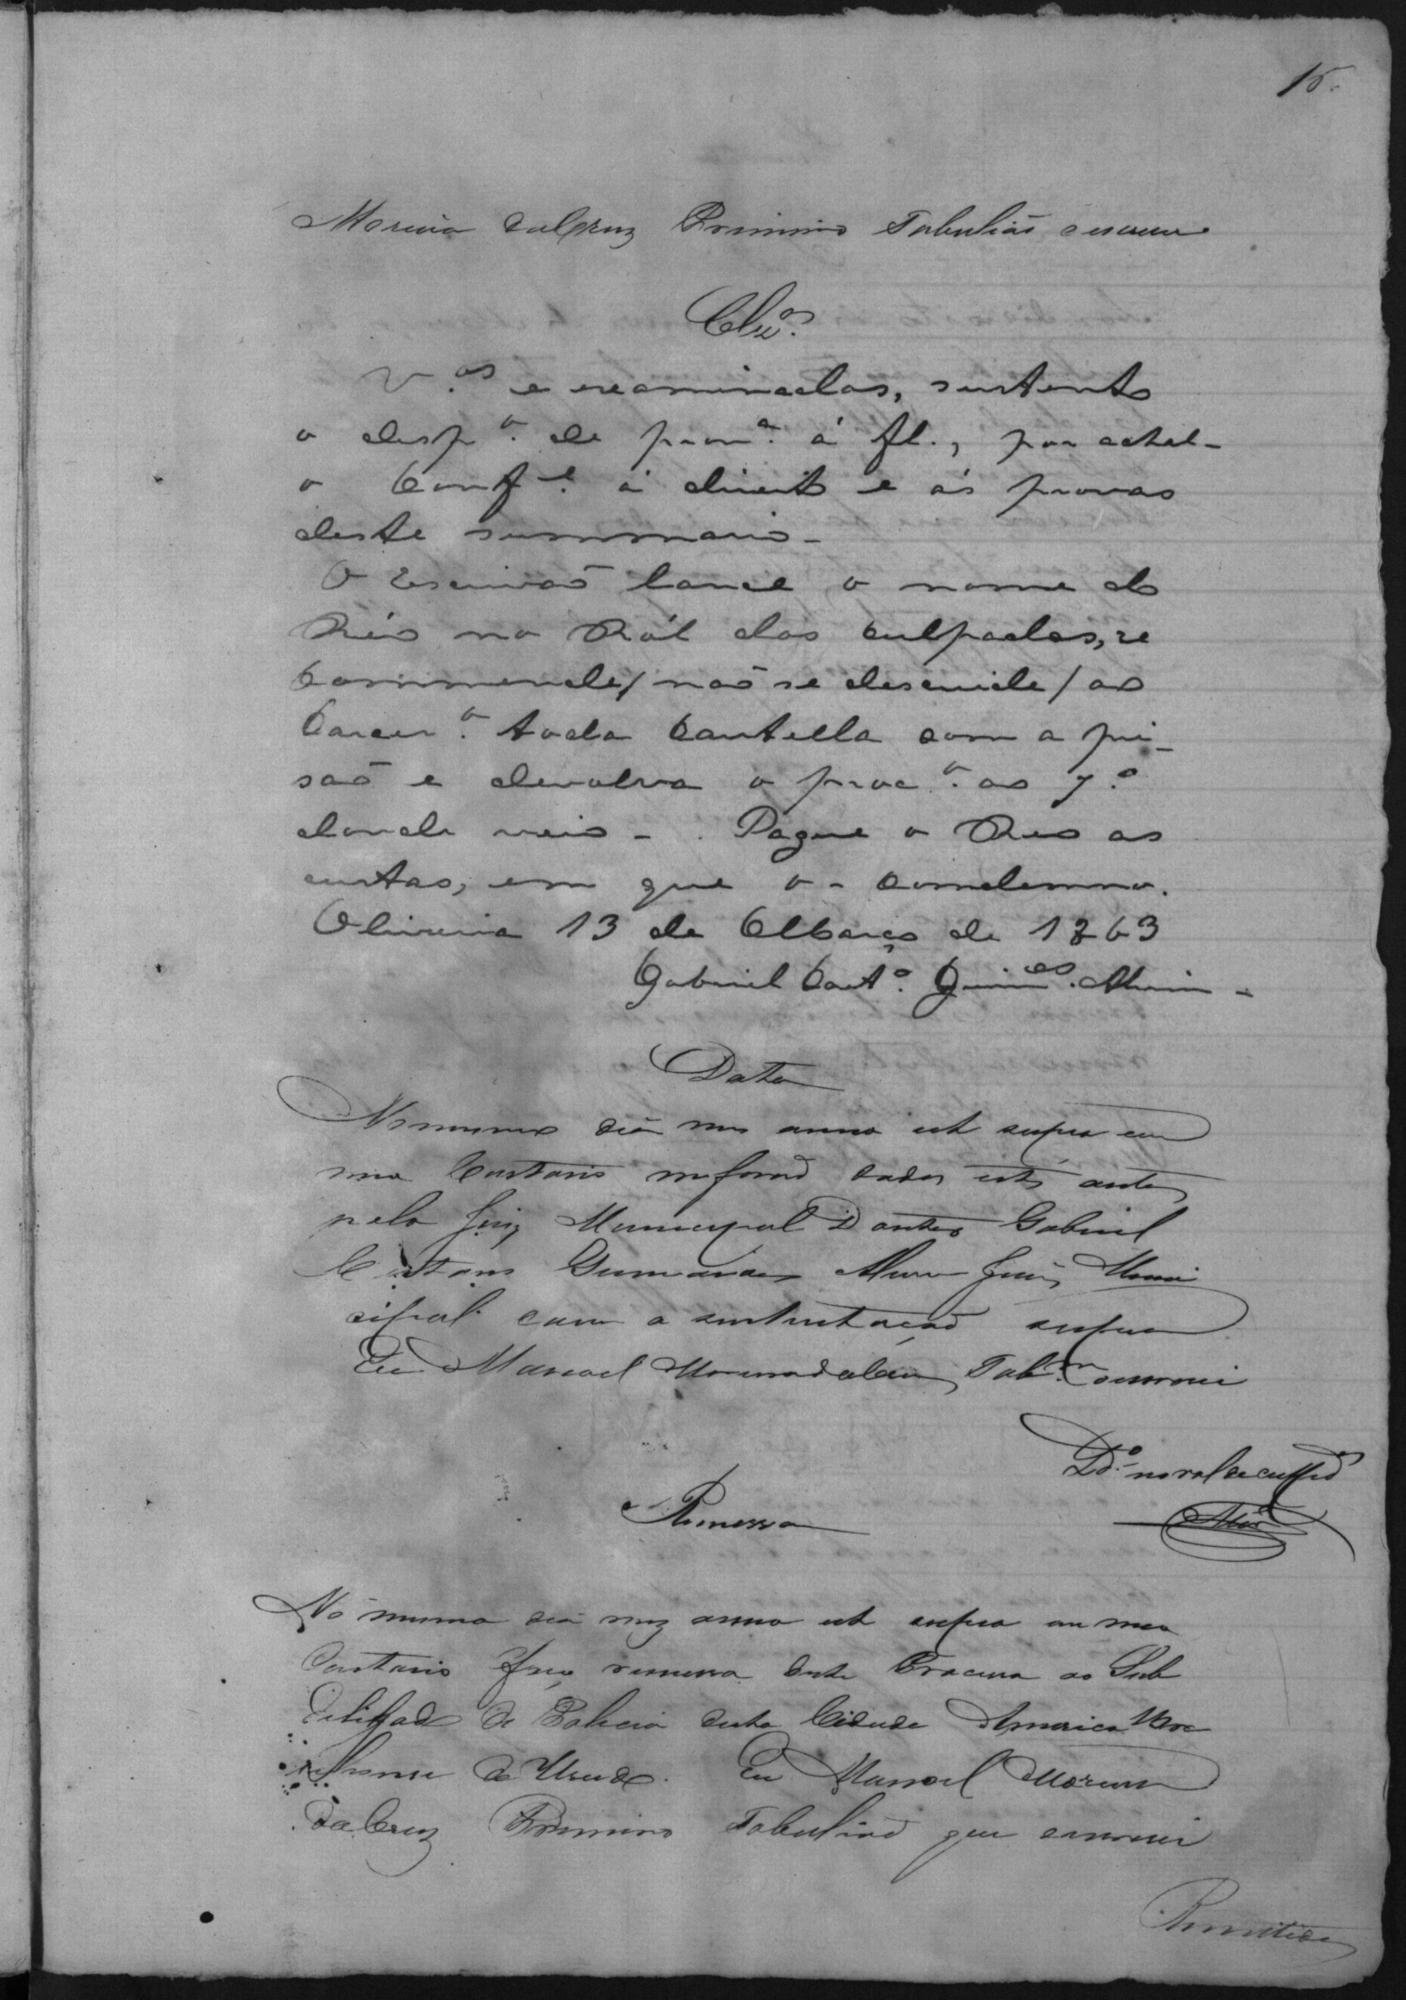 15.
Moreira da Cruz Primeiro Tabelião escrevi
Clu.os
V.os e examinados, sustento
o desp.o de pron.a á fl., por achal-
o Conf.e á direito e ás provas
deste summario -
O Escrivaõ lance o nome do
Réo no Ról dos culpados, re
commende / naõ se descuide / ao
Carcer.o toda cautella com a pri-
saõ e devolva o proc.o ao J.o
donde veio - . Pague o Reo as
custas, em que o - condemno.
Oliveira 13 de Março de 1863
Gabriel Caet.o Guim.es Alvim -
Data
No mesmo dia mes anno ut supra em
meo Cartorio me foraõ dados estes autos
pelo Juiz Municipal Doutor Gabriel
Caetano Guimaraes Alvim Juiz Muni
cipal com a sustentaçaõ supra
Eu Manoel Moreira da Cruz Tab.m escrevi
Remessa
No mesmo dia mez anno ut supra em meo
Cartorio faço remessa deste Processo ao Sub
Delegado de Policia desta Cidade America
Eu Manoel Moreira
da Cruz Primeiro Tabeliaõ que escrevi
Remettido